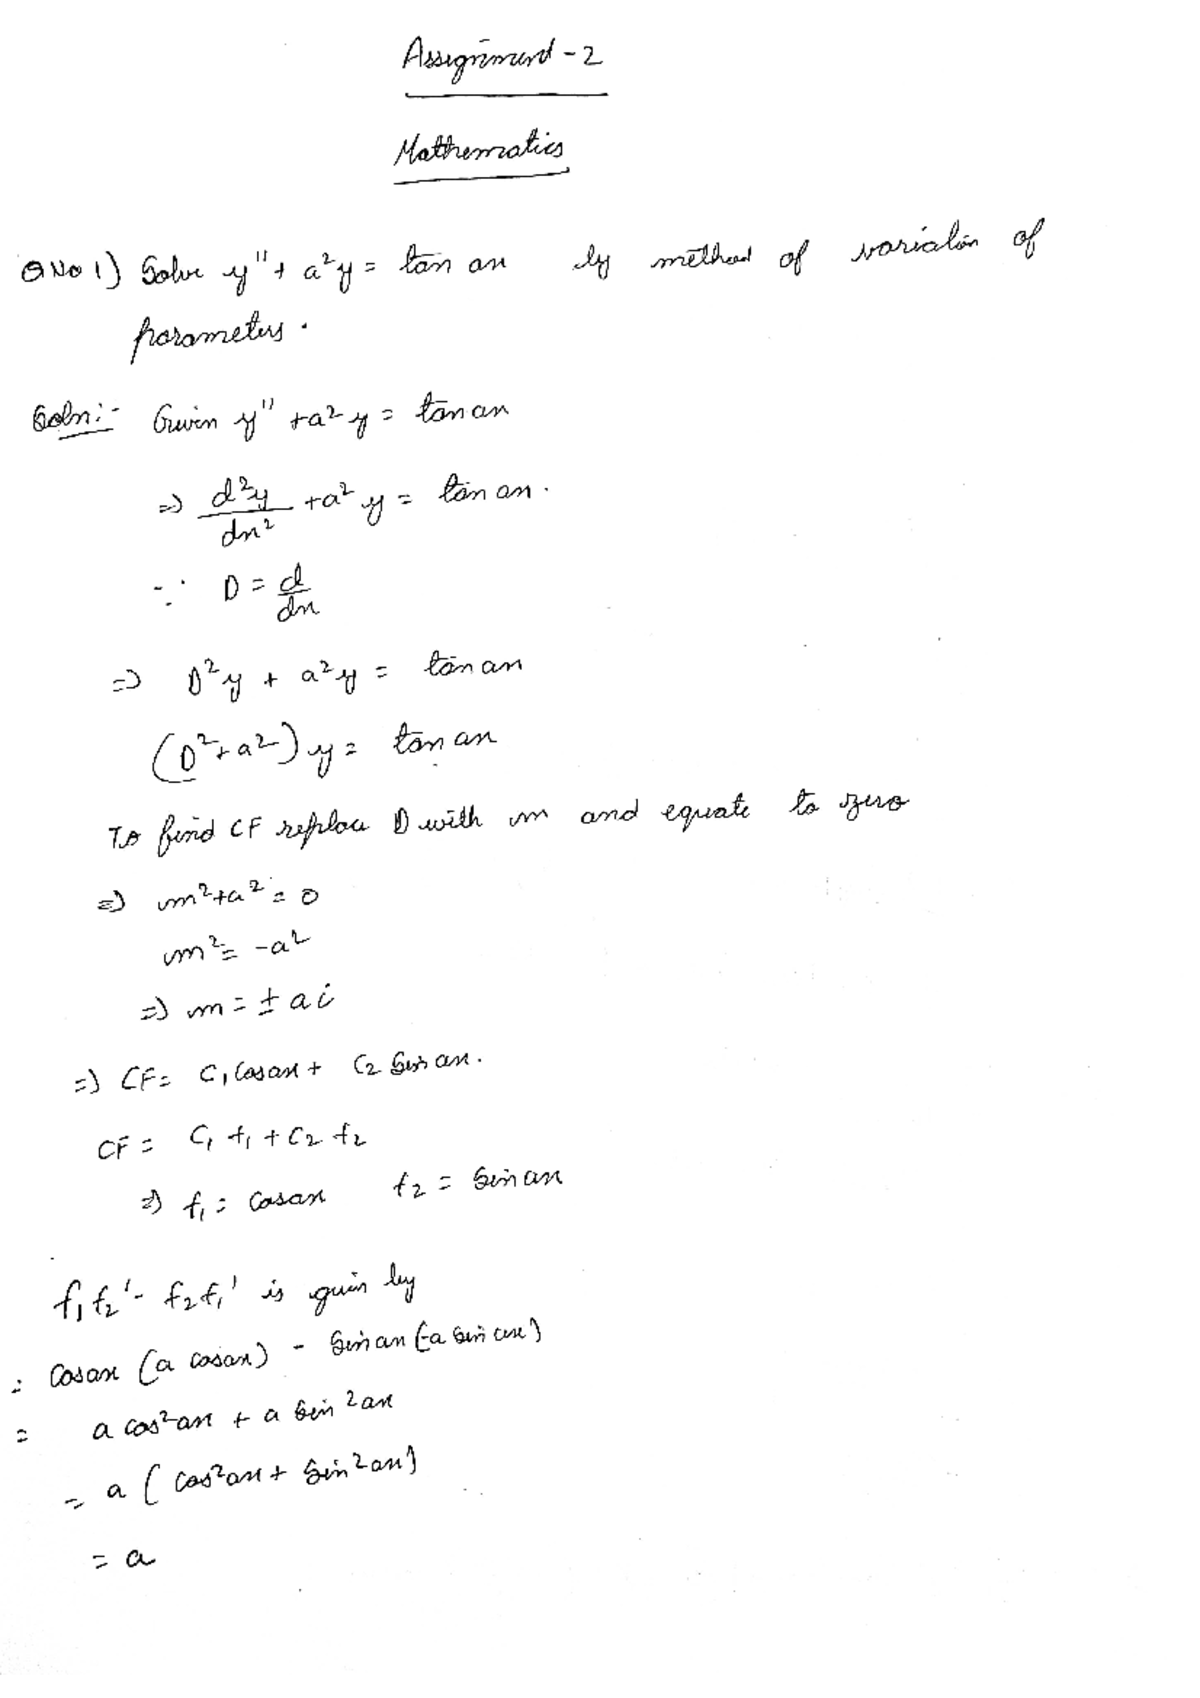 Assignment - 2
Mathematics
Q No 1) Solve y'' + a²y = tan ax by method of variation of
parameters.
Soln:- Given y'' + a²y = tan ax
=> d²y/dx² + a²y = tan ax.
∵ D = d/dx
=> D²y + a²y = tan ax
(D² + a²) y = tan ax
To find CF replace D with m and equate to zero
=> m² + a² = 0
m² = -a²
=> m = ± ai
=> CF = C₁ Cosax + C₂ Sin ax.
CF = C₁ f₁ + C₂ f₂
=> f₁ = Cosax f₂ = Sin ax
f₁f₂' - f₂f₁' is given by
= Cosax (a cosax) - Sin ax (-a Sin ax)
= a cos²ax + a Sin²ax
= a ( cos²ax + Sin²ax)
= a